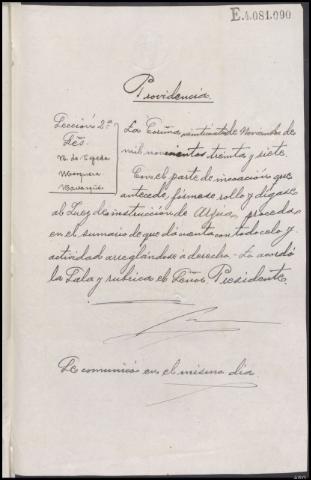 E.4.081.090
Providencia.
Sección 2ª
Srs.
La Coruña veintisiete de Noviembre de
mil novecientos treinta y siete.
Con el parte de incoación que
antecede, fórmese rollo y dígase
al Juez de instrucción de proceda
en el sumario de que da cuenta con todo celo y
actividad arreglándose a derecho.- Lo acordó
la Sala y rubrica el Señor Presidente.
Se comunicó en el mismo día